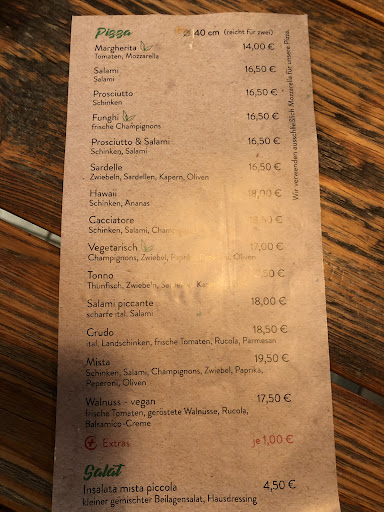 Pizza ⌀ 40 cm (reicht für zwei)
Margherita 14,00 €
Tomaten, Mozzarella
Salami 16,50 €
Salami
Prosciutto 16,50 €
Schinken
Funghi 16,50 €
frische Champignons
Prosciutto & Salami 16,50 €
Schinken, Salami
Sardelle 16,50 €
Zwiebeln, Sardellen, Kapern, Oliven
Hawaii 18,00 €
Schinken, Ananas
Cacciatore €
Schinken, Salami,
Vegetarisch 17,00 €
Champignons, Zwiebel, Oliven
Tonno €
Thunfisch, Zwiebeln,
Salami piccante 18,00 €
scharfe ital. Salami
Crudo 18,50 €
ital. Landschinken, frische Tomaten, Rucola, Parmesan
Mista 19,50 €
Schinken, Salami, Champignons, Zwiebel, Paprika,
Peperoni, Oliven
Walnuss - vegan 17,50 €
frische Tomaten, geröstete Walnüsse, Rucola,
Balsamico-Creme
Extras je 1,00 €
Salat
Insalata mista piccola 4,50 €
kleiner gemischter Beilagensalat, Hausdressing
Wir verwenden ausschließlich Mozzarella für unsere Pizza.